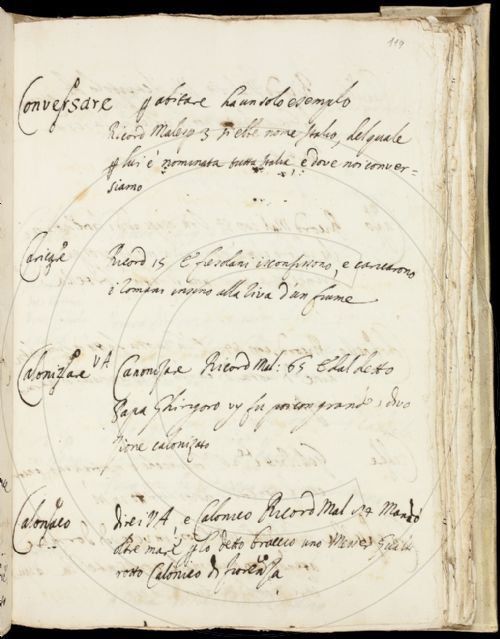 119
Conversare p abitare ha un solo esempio
Ricord Malesp 3 si ebbe nome Italo, del quale
p lui è nominata tutta Italia e dove noi conver=
siamo
Ricord 15 E fiesolani isconfissono, e cacciarono
i Romani insino alla riva d'un fiume
Calonizzare VA Canonizzare Ricord Mal: 65 E dal detto
Papa Ghirigoro
zione calonizato
Calonaco dresi VA, e Calonico Ricord Mal 124 Mandò
oltre mare p lo detto braccio uno Messer
Calonico di Fiorenza